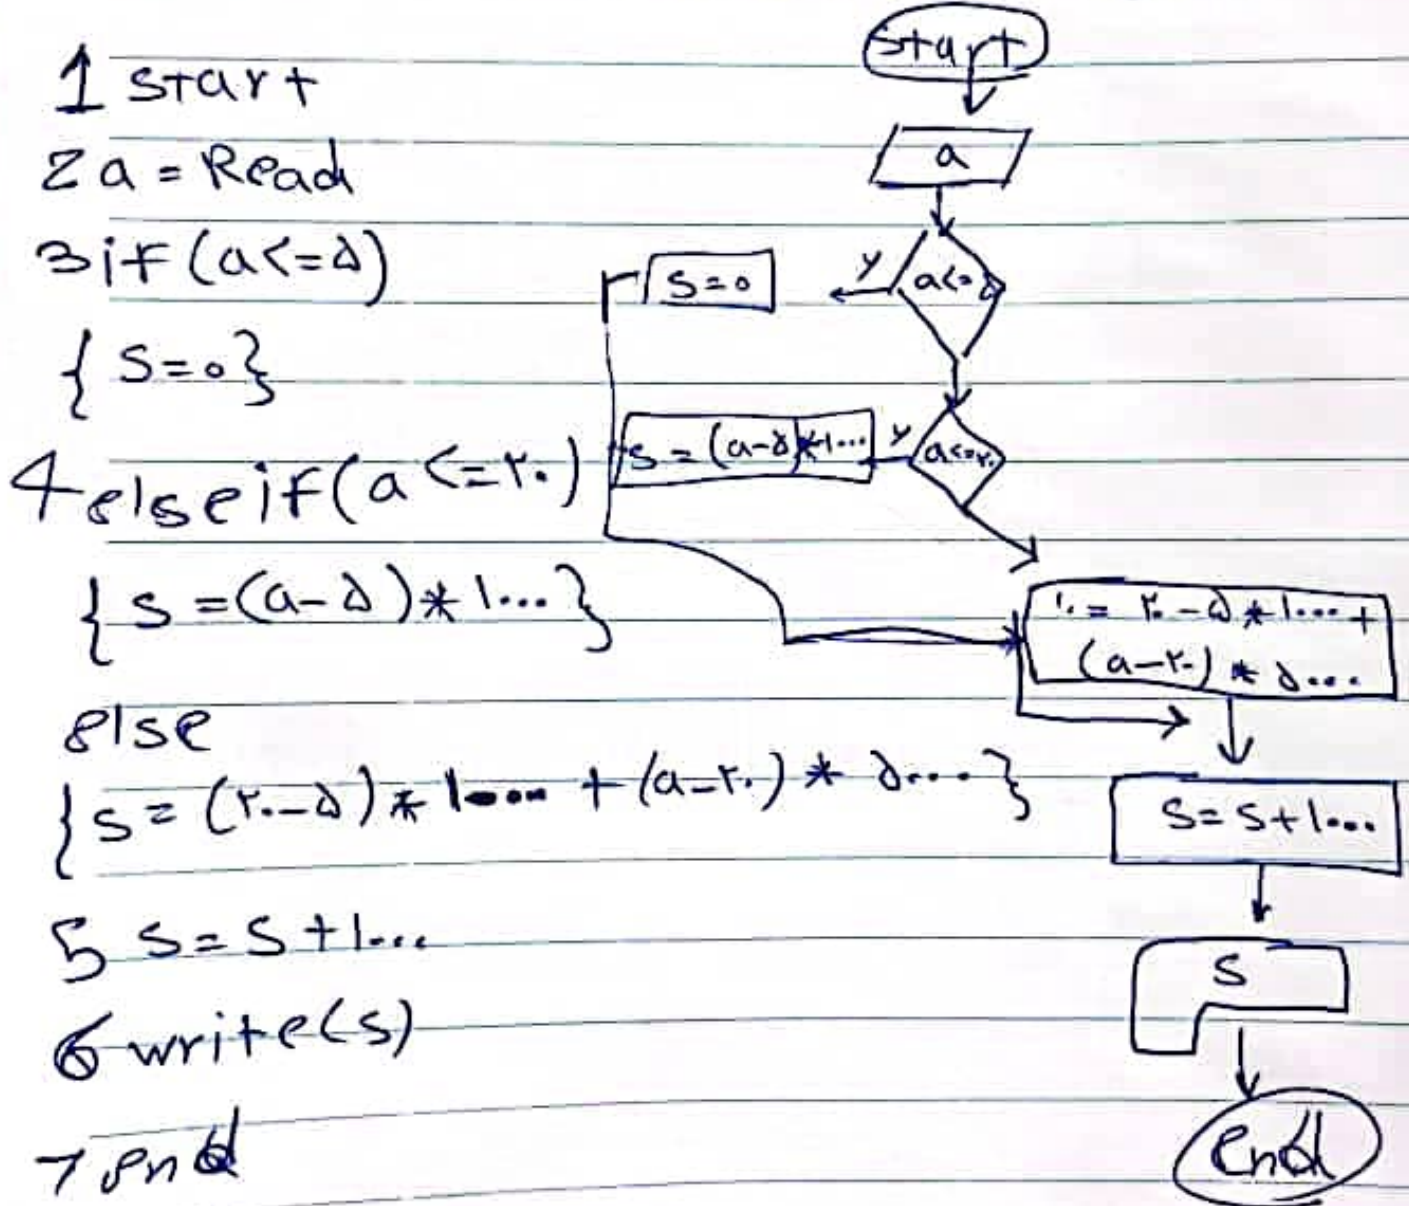 1 start
2 a = Read
3 if (a<=۵)
{ S=۰}
4 else if (a <=۲۰)
{ s =(a-۵)* ۱۰۰۰ }
else
{ s = (۲۰-۵)* ۱۰۰۰ + (a-۲۰) * ۵۰۰۰ }
5 S=S+۱۰۰۰
6 write(s)
7 end
start
a
a<=۵
y
S=۰
a<=۲۰
y
S = (a-۵)*۱۰۰۰
= ۲۰-۵*۱۰۰۰+
(a-۲۰) * ۵۰۰۰
S=S+۱۰۰۰
S
end